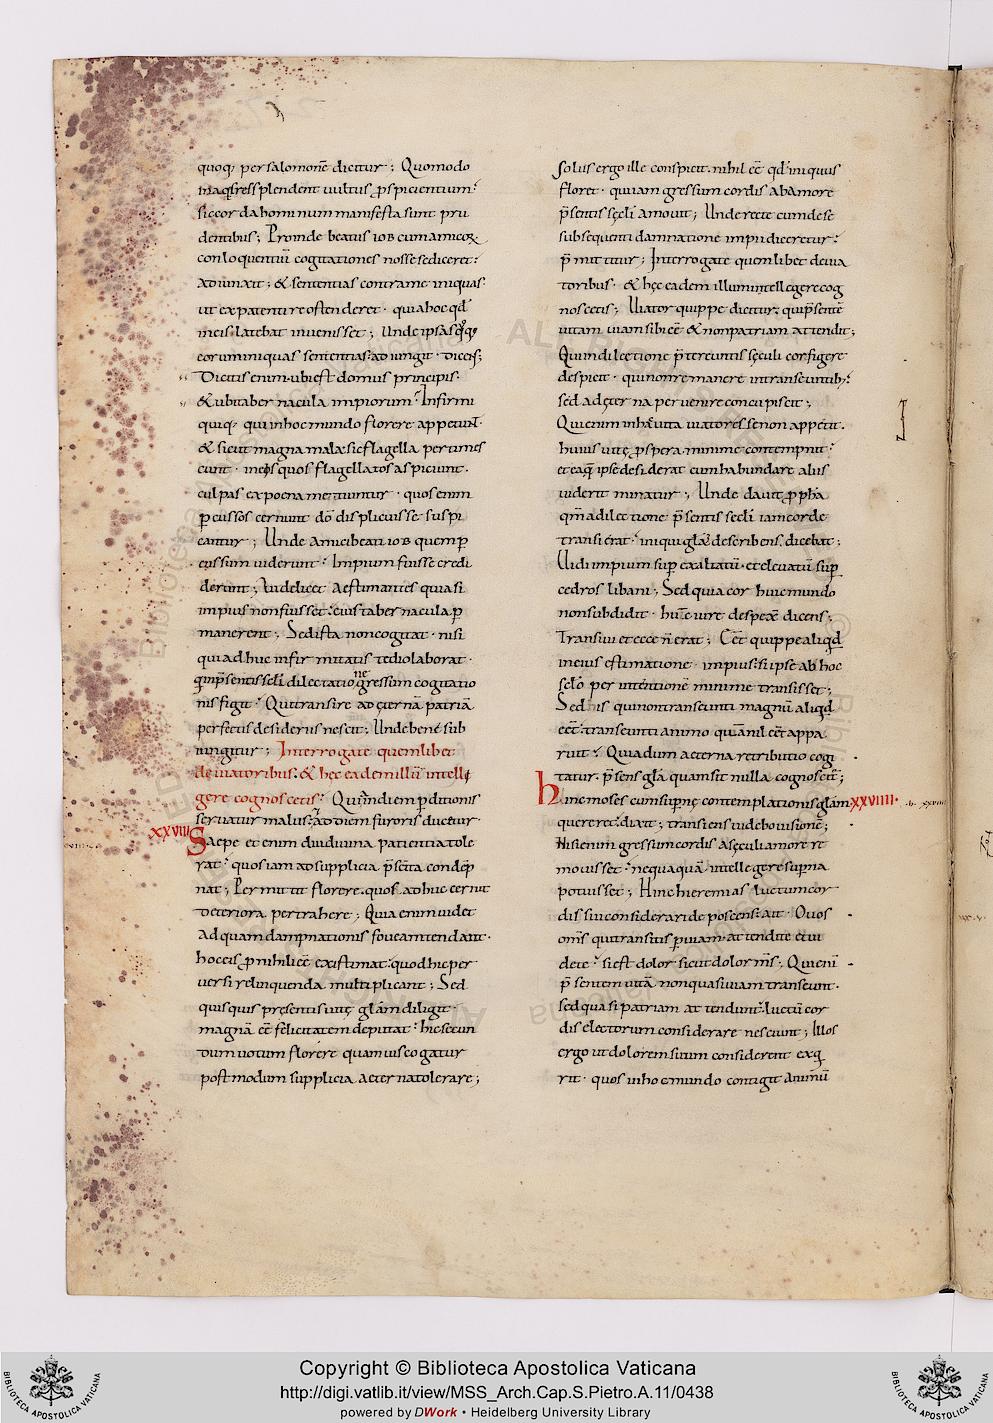 quoq; per salomonē dicitur; Quomodo
in aqs resplendent uultus ꝓspicientium:
sic corda hominum manifesta sunt pru
dentibus; Proinde beatus iob cum amicoꝝ
conloquentiū cogitationes nosse se diceret:
adiunxit; & sententias contra me iniquas:
ut ex patenti re ostenderet · quia hoc qd̄
in eis latebat inuenisset; Unde ipsas qq;
eorum iniquas sententias adiungit · Dicens;
Dicitis enim · ubi est domus principis ·
& ubi tabernacula impiorum? Infirmi
quiq; qui in hoc mundo florere appetunt ·
& sicut magna mala: sic flagella pertimes
cunt · in eis quos flagellatos aspiciunt ·
culpas ex poena metiuntur · quos enim
ꝑcussos cernunt dō displicuisse suspi
cantur; Unde amici beati iob quem ꝑ
cussum uiderunt: Impium fuisse credi
derunt; Videlicet aestimantes quia si
impius non fuisset: eius tabernacula ꝑ
manerent; Sed ista non cogitat · nisi
qui adhuc infirmitatis tedio laborat ·
qui in p̄sentis scl̄i dilectatione gressum cogitatio
nis figit: Qui transire ad ęternā patriā
perfectis desideriis nescit; Unde bene sub
iungitur; Interrogate quemlibet
de uiatoribus: & hęc eadem illū intelli
gere cognoscetis: Quia in diem ꝑditionis
seruatur malus: & ad diem furoris ducetur ·
xxviii Saepe etenim diu diuina patientia tole
rat: quos iam ad supplicia p̄scita condēp
nat; Permittit florere · quos adhuc cernit
deteriora pertrahere; Quia enim uidet
ad quam dampnationis foueam tendant ·
hoc eis ꝓ nihilo eē existimat: quod hic per
uersi relinquenda multiplicant; Sed
quisquis pręsentis uitę glā̄m diligit ·
magnā eē felicitatem deputat: hic secun
dum uotum florere quamuis cogatur
postmodum supplicia aeterna tolerare;
Solus ergo ille conspicit · nihil eē qd̄ iniquus
floret · qui iam gressum cordis ab amore
p̄sentis sęcli amouit; Unde recte cum de se
subsequenti damnatione impii diceretur:
p̄mittitur; Interrogate quemlibet de uia
toribus · & hęc eadem illum intellegere cog
noscetis; Uiator quippe dicitur, qui p̄sentē
uitam uiam sibi eē & non patriam attendit;
Qui in dilectione p̄tereuntis sęculi cor figere
despicit · qui non remanere in transeuntib;:
sed ad ęterna peruenire concupiscit;
Qui enim in hac uita uiator esse non appetit ·
huius uitę ꝓspera minime contempnit:
et ea quę ipse desiderat cum habundare aliis
uiderit miratur; Unde dauit ꝓpha
qm̄ a dilectione p̄sentis secli iam corde
transierat: iniqui glā̄ describens, dicebat;
Uidi impium suꝑ exaltatū · et eleuatū suꝑ
cedros libani; Sed quia cor huic mundo
non subdidit · hunc iure despexit dicens;
Transiui et ecce n̄ erat; Eēt quippe aliqd̄
in eius estimatione · impius: si ipse ab hoc
seclo per intentionē minime transisset;
Sed his qui non transeunti magnū aliqd̄
eēt: transeunti animo quā nil eēt appa
ruit: Qua dum aeterna retributio cogi
tatur · p̄sens glā quam sit nulla cognoscit̄;
Hinc moses cum supnę contemplationis glā̄m xxviiii ·
quereret: dixit; transiens uidebo uisionē;
Nisi enim gressum cordis a sęculi amore re
mouisset: nequaquā intellegere superna
potuisset; Hinc hieremias luctum cor
dis sui considerari deposcens: ait · O uos
om̄s qui transitis ꝑ uiam · attendite et ui
dete: si est dolor sicut dolor m̄s; Qui enī
p̄sentem uitā non quasi uiam transeunt ·
sed quasi patriam attendunt: luctū cor
dis electorum considerare nesciunt; Illos
ergo ut dolorem suum considerent exq
rit · quos in hoc mundo contigit animū
Copyright © Biblioteca Apostolica Vaticana
http://digi.vatlib.it/view/MSS_Arch.Cap.S.Pietro.A.11/0438
powered by DWork • Heidelberg University Library